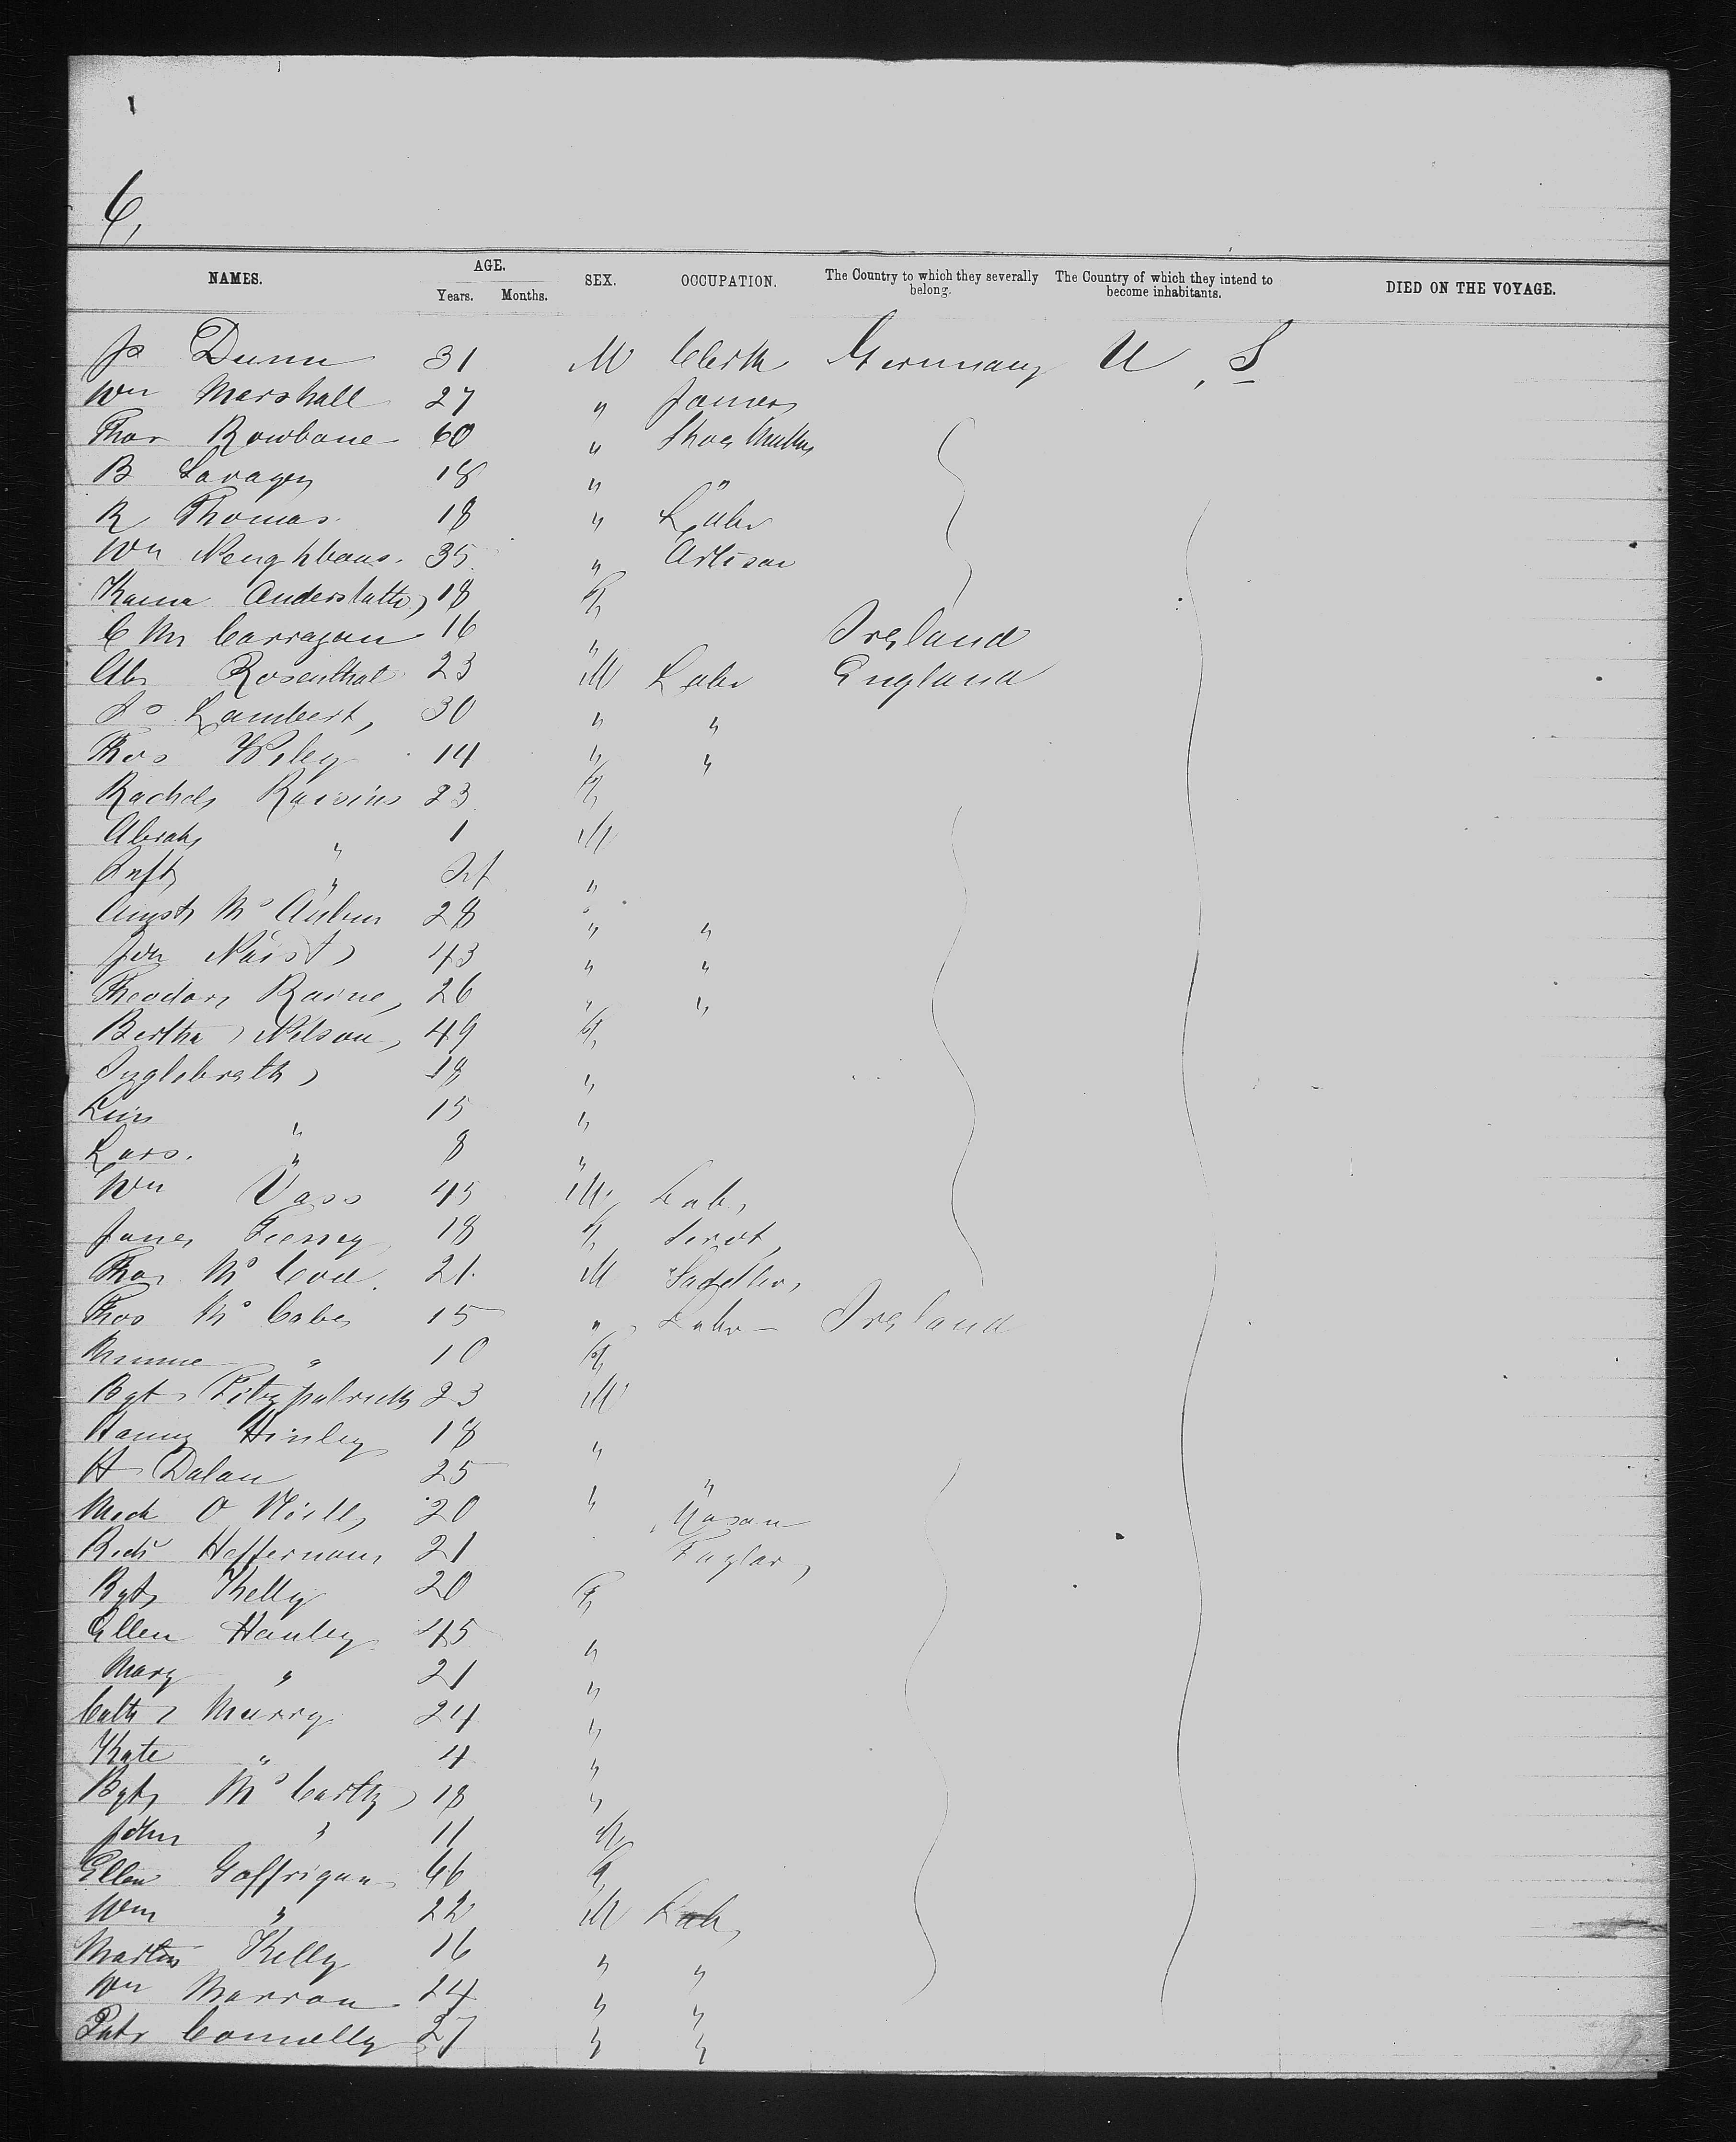 6,
NAMES. AGE. Years. Months. SEX. OCCUPATION. The Country to which they severally belong. The Country of which they intend to become inhabitants. DIED ON THE VOYAGE.
Jo Dunn 31 M Clerk Germany U. S
Wm Marshall 27 "
Thos Rowbone 60 " Shoe
B Savagey 18 " "
R Thomas. 18 " Labr
Wm Neighbaus. 35 " Artisan
18 F
C Carragan 16 " Ireland
Ab Rosenthal 23 M Labr England
Jo Lambert, 30 " "
Thos Wiley 14 " "
Rachel 23 F
Abrah " 1 M
Inft " Inft "
28 " "
Jon 43 " "
Theodor 26 " "
Bertha Nelson, 49 F
Inglebreth 18 "
" 15 "
Lars. " 8 "
Wm Vass 45 M Lab,
Jane 18 F Servt
Thos Mc 21 M Saddler,
Thos Mc Cabe 15 " Labr Ireland
Minnie " 10 F
Bgt Fitzpatrick 23 M
Hanny Hinley 18 "
H Dalan 25 " "
Mick O Neill, 20 Mason
Heffernan, 21 Taylor,
Bgt Kelly 20 F
Ellen Hanley 45 "
Mary " 21 "
Cath Murry 24 "
Kate " 4 "
Bgt Mc Carthy 18 "
John " 11 M
Ellen Gaffrigan 46 F
Wm " 22 M Lab,
Martin Kelly 16 " "
Wm Marron 24 " "
Patr Connelly 27 " "